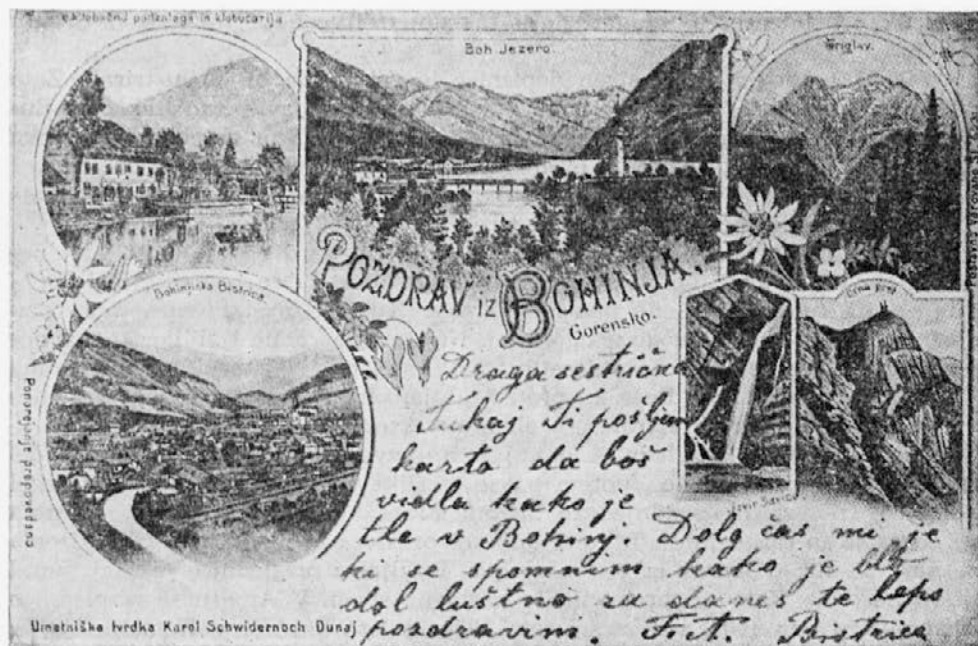 tobačna podzaloga in klobučarija
Boh. Jezero.
Triglav.
Bohinjska Bistrica.
POZDRAV IZ BOHINJA,
Gorensko.
Črna prst
Izvir Savice
Ponarejanje prepovedano
Draga sestrična
Tukaj Ti pošljem
karto da boš
vidla kako je
tle v Bohinj. Dolg čas mi je
ki se spomnim kako je blo
dol luštno za danes te lepo
pozdravim. F. A. Bistrica
Umetniška tvrdka Karol Schwidernoch Dunaj